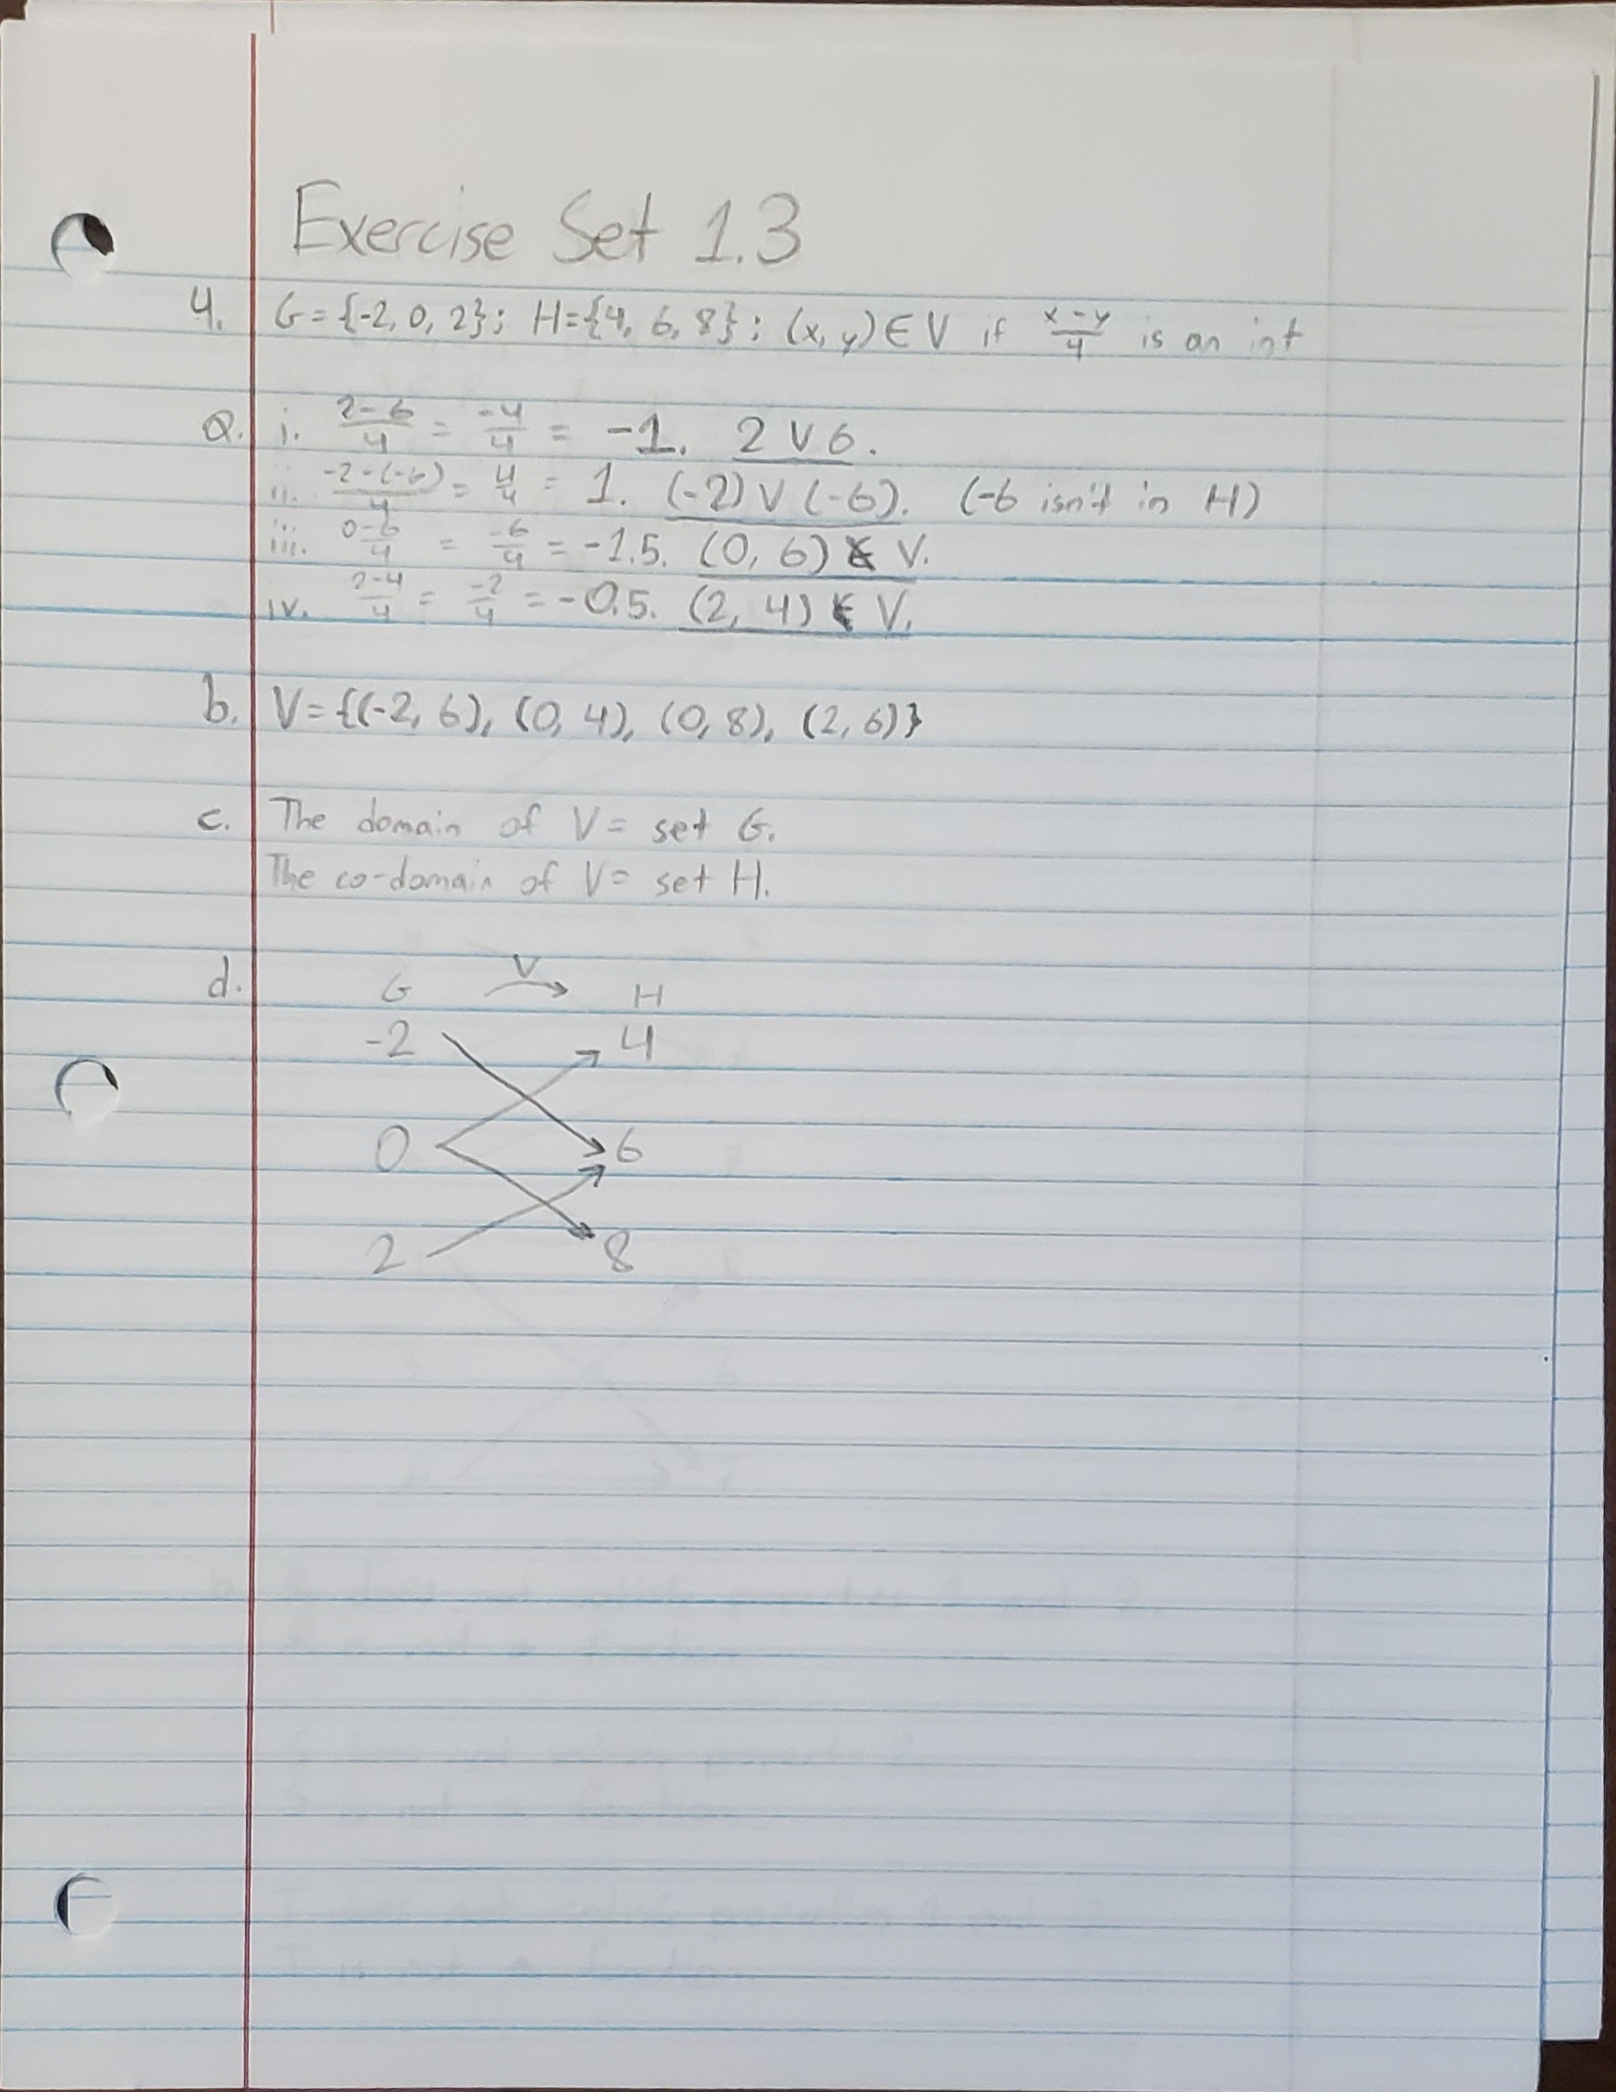 Exercise Set 1.3
4. G = {-2, 0, 2}; H = {4, 6, 8}; (x, y) ∈ V if (x-y)/4 is an int
a. i. (2-6)/4 = -4/4 = -1. 2 V 6.
ii. (-2-(-6))/4 = 4/4 = 1. (-2) V (-6). (-6 isn't in H)
iii. (0-6)/4 = -6/4 = -1.5. (0, 6) ∉ V.
iv. (2-4)/4 = -2/4 = -0.5. (2, 4) ∉ V.
b. V = {(-2, 6), (0, 4), (0, 8), (2, 6)}
c. The domain of V = set G.
The co-domain of V = set H.
d. G V→ H
-2 4
0 6
2 8